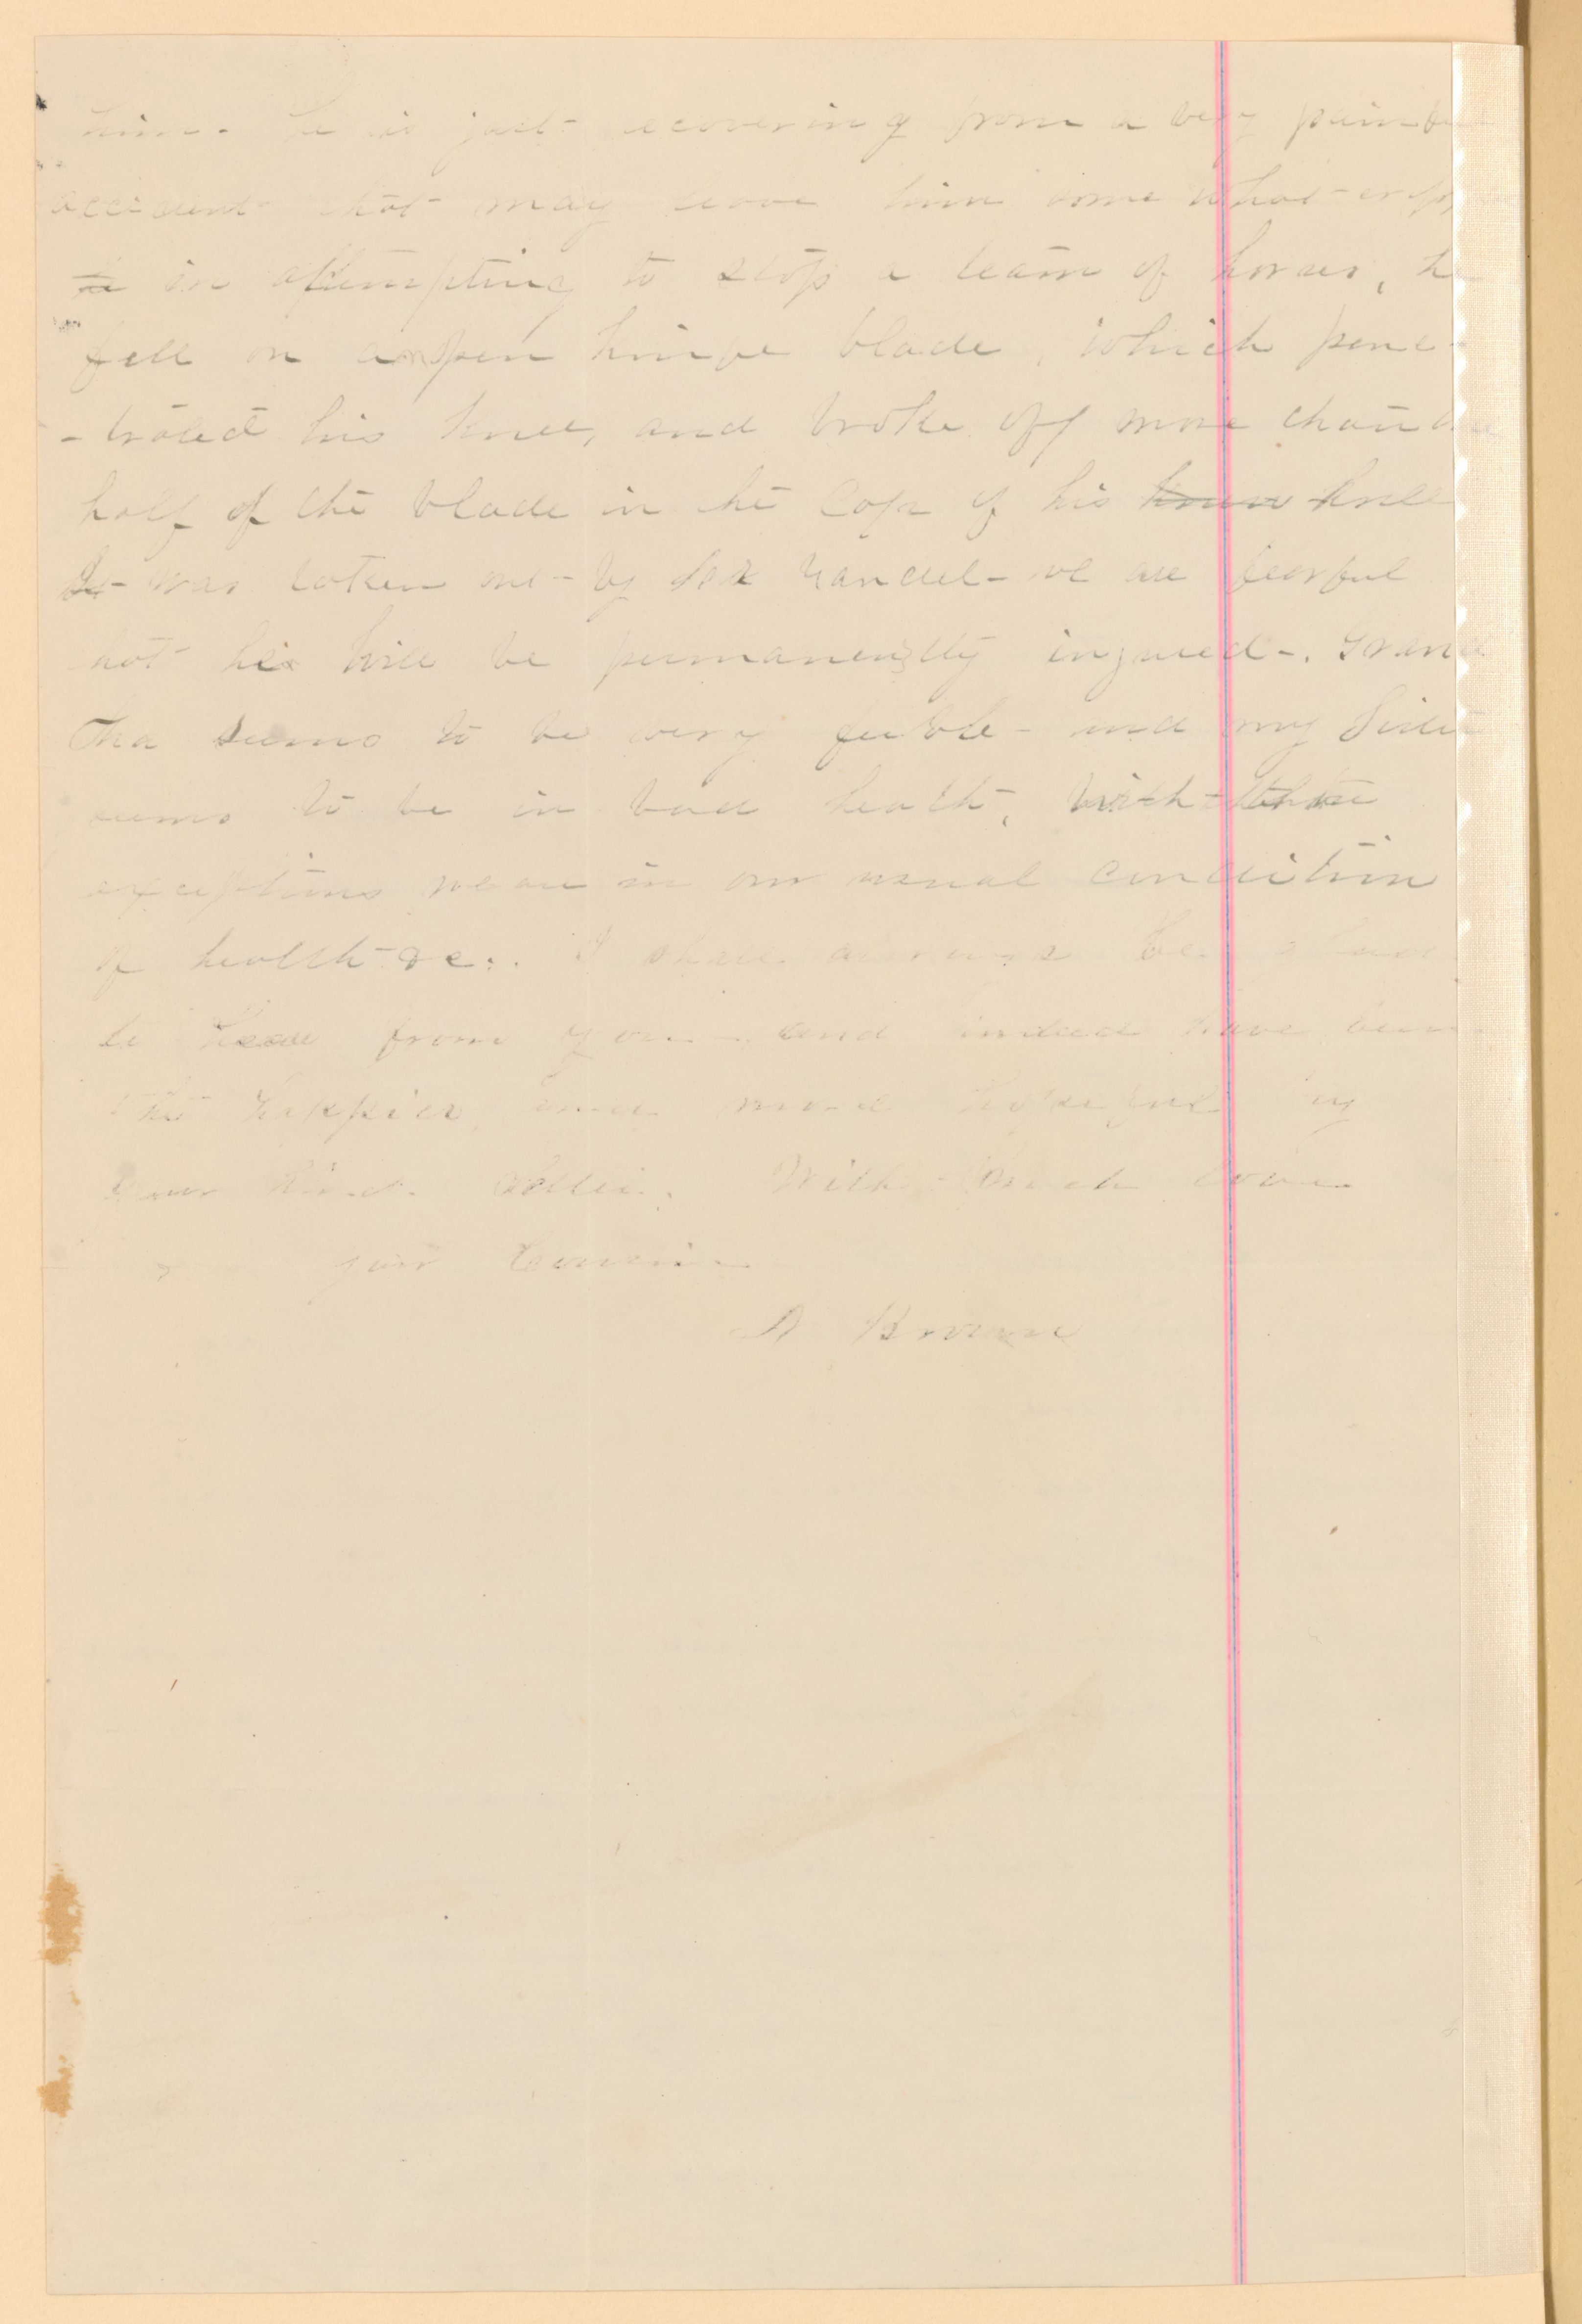 him. He is just recovering from a very painful
accident that may leave him some what
in attempting to stop a team of horses, he
fell on an open knife blade, which pene-
-trated his knee, and broke off more than
half of the blade in the cap of his knee
It was taken out by Yandel - we are fearful
that he will be permanently injured -. Grand
Pa seems to be very feeble - and my Sister
seems to be in bad health, With these
exceptions we are in our usual condition
of health &c. I shall always be
to hear from you - and indeed have been
the happier, and more hopeful by
your kind letter. With much love
your Cousin
Brown